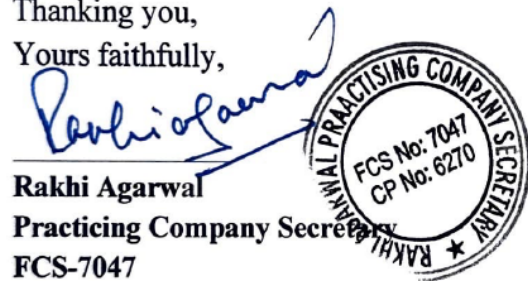 Thanking you,
Yours faithfully,
Rakhi Agarwal
Rakhi Agarwal
Practicing Company Secretary
FCS-7047
RAKHI AGARWAL PRAACTISING COMPANY SECRETARY
FCS No: 7047
CP No: 6270